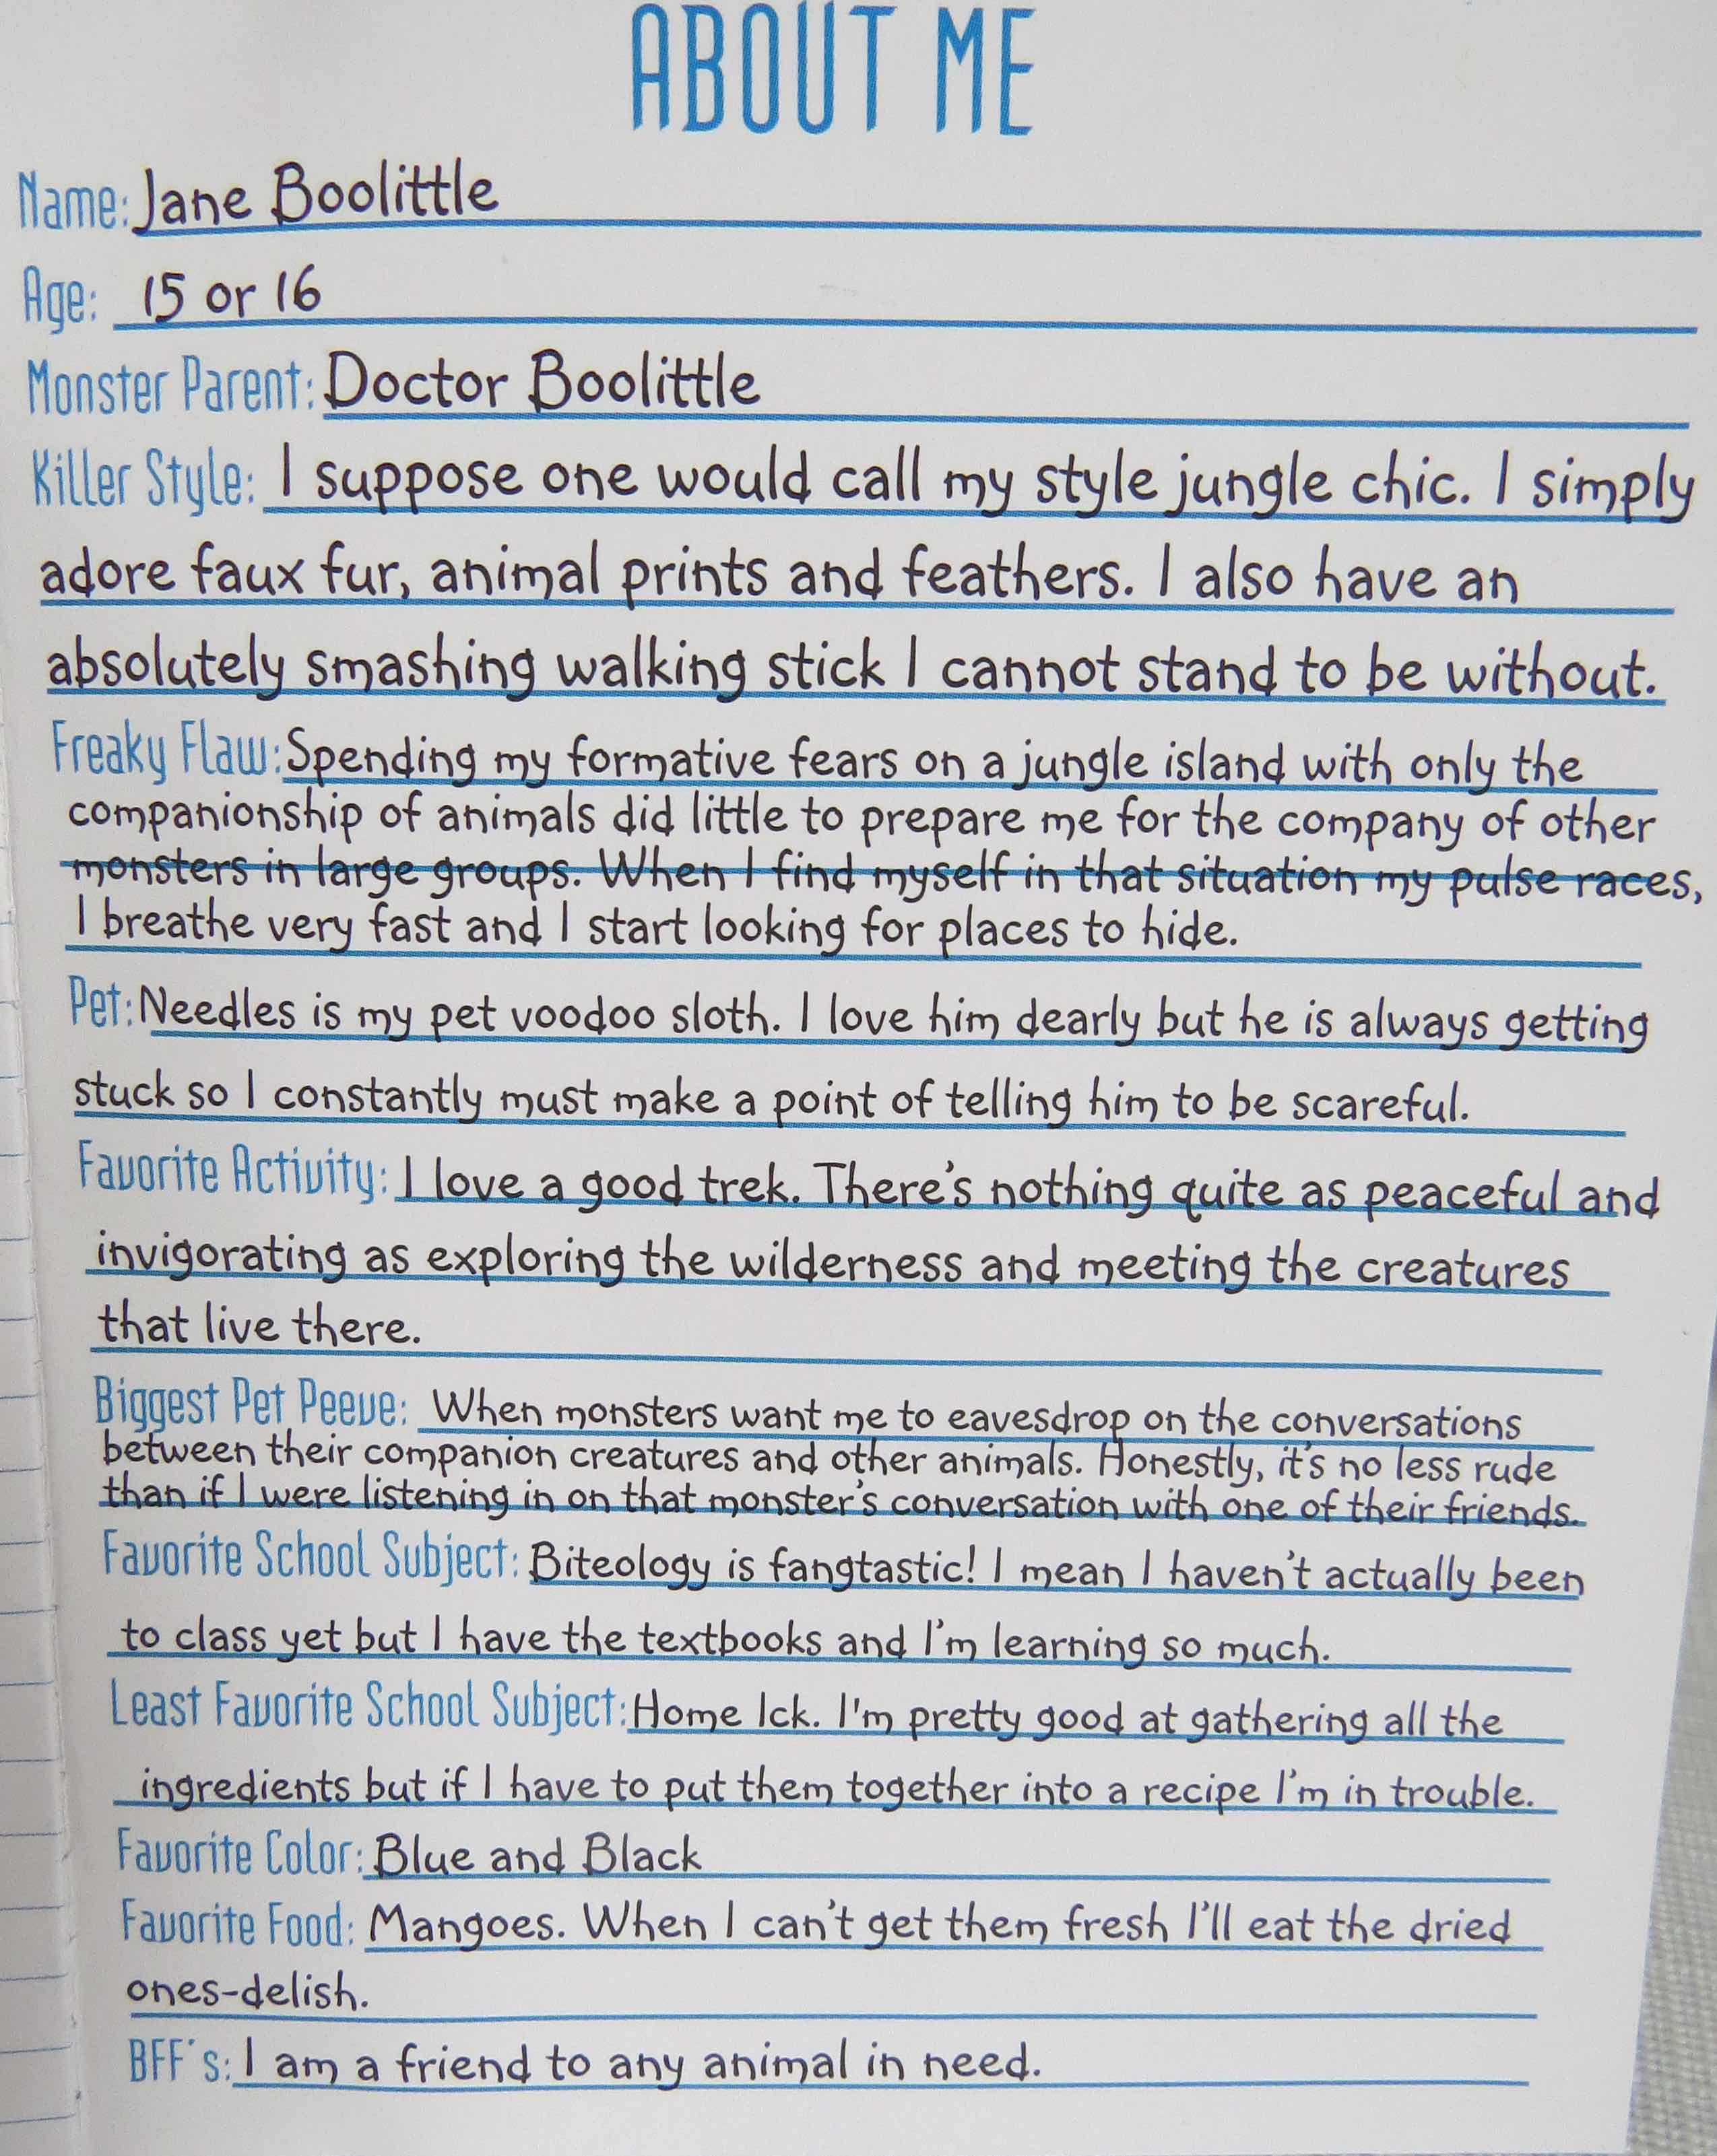 ABOUT ME
Name: Jane Boolittle
Age: 15 or 16
Monster Parent: Doctor Boolittle
Killer Style: I suppose one would call my style jungle chic. I simply
adore faux fur, animal prints and feathers. I also have an
absolutely smashing walking stick I cannot stand to be without.
Freaky Flaw: Spending my formative fears on a jungle island with only the
companionship of animals did little to prepare me for the company of other
monsters in large groups. When I find myself in that situation my pulse races,
I breathe very fast and I start looking for places to hide.
Pet: Needles is my pet voodoo sloth. I love him dearly but he is always getting
stuck so I constantly must make a point of telling him to be scareful.
Favorite Activity: I love a good trek. There's nothing quite as peaceful and
invigorating as exploring the wilderness and meeting the creatures
that live there.
Biggest Pet Peeve: When monsters want me to eavesdrop on the conversations
between their companion creatures and other animals. Honestly, it's no less rude
than if I were listening in on that monster's conversation with one of their friends.
Favorite School Subject: Biteology is fangtastic! I mean I haven't actually been
to class yet but I have the textbooks and I'm learning so much.
Least Favorite School Subject: Home Ick. I'm pretty good at gathering all the
ingredients but if I have to put them together into a recipe I'm in trouble.
Favorite Color: Blue and Black
Favorite Food: Mangoes. When I can't get them fresh I'll eat the dried
ones-delish.
BFF's: I am a friend to any animal in need.